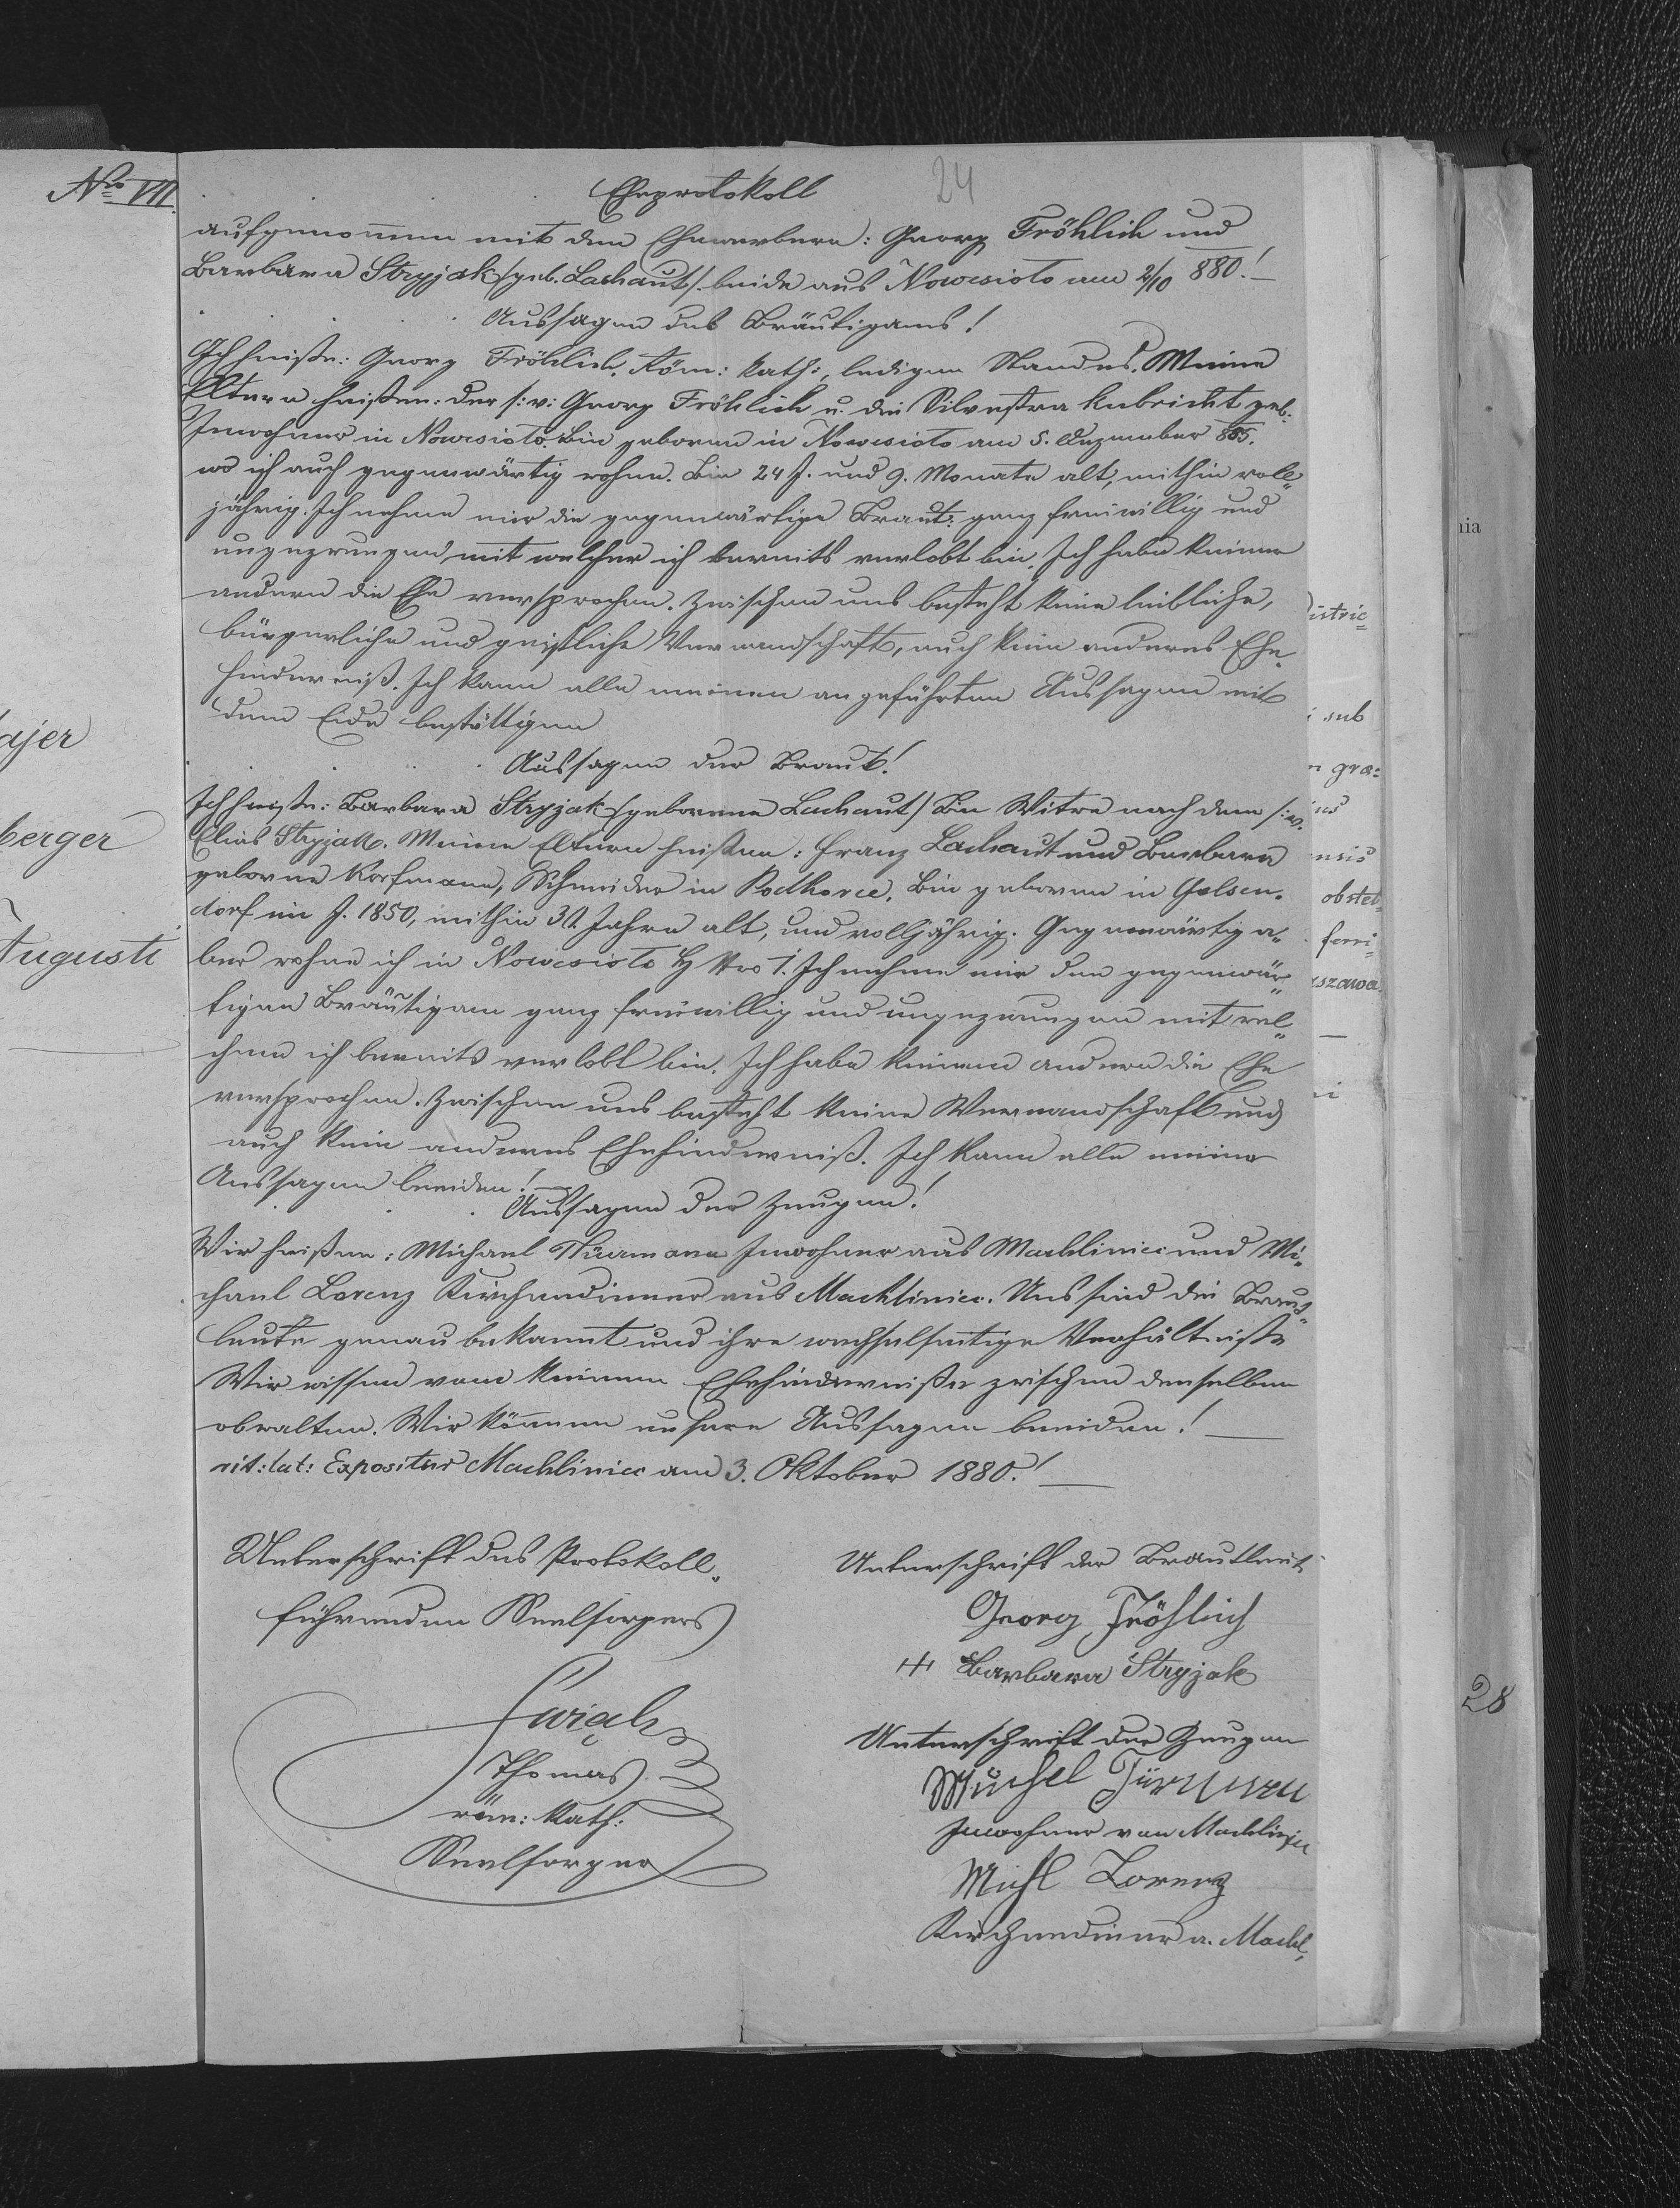 No VII.
24
Eheprotokoll
aufgenommen mit den Ehewerbern: Georg Fröhlich und
Barbara Stryjak /geb. Lachaut/ beide aus Nowesioło am 2/10 880!—
Aussagen des Bräutigams!
Ich heiße: Georg Fröhlich, Röm: kath:, ledigen Standes. Meine
Eltern heißen: der s: v: Georg Fröhlich u. die Silvestra Kubricht geb.
Inwohner in Nowesioło. Bin geboren in Nowesioło am 5. Dezember 855.
wo ich auch gegenwärtig wohne. Bin 24 J. und 9. Monate alt, mithin voll„
jährig. Ich nehme mir die gegenwärtige Braut: ganz freiwillig und
ungezwungen, mit welcher ich bereits verlobt bin. Ich habe keiner
andern die Ehe versprochen. Zwischen uns besteht keine leibliche,
bürgerliche und geistliche Verwandschaft, auch kein anderes Ehe„
hinderniß. Ich kann alle meinen angeführten Aussagen mit
dem Eide bestättigen
Aussagen der Braut!
Ich heiße: Barbara Stryjak /geborene Lachaut/ Bin Witwe nach dem s: v.
Elias Stryjak. Meine Eltern heißen: Franz Lachaut und Barbara
geborne Korfmann, Schneider in Podhorce. Bin geboren in Gelsen„
dorf im J. 1850, mithin Jahre alt, und volljährig. Gegenwärtig a„
ber wohne ich in Nowesioło H Nro 1. Ich nehme mir den gegenwär„
tigen Bräutigam ganz freiwillig und ungezwungen mit wel„
chem ich bereits verlobt bin. Ich habe keinem andern die Ehe
versprochen. Zwischen uns besteht keine Verwandschaft und
auch kein anderes Ehehinderniß. Ich kann alle meine
Aussagen beeiden!—
Aussagen der Zeugen!
Wir heißen: Michael Thürmann Inwohner aus Machliniec und Mi„
chael Lorenz Kirchendiener aus Machliniec. Uns sind die Braut„
leute genau bekannt und ihre wechselseitige Verhältniße
Wir wissen von keinem Ehehinderniße zwischen denselben
obwalten. Wir können unsere Aussagen beeiden!—
rit: lat: Expositur Machliniec am 3. Oktober 1880.!—
Unterschrift des Protokoll„
führenden Seelsorgers
Thomas
röm: kath:
Seelsorger
Unterschrift der Brautleute
Georg Fröhlich
+++ Barbara Stryjak
Unterschrift der Zeugen
Michel Türmann
Inwohner von Machliniec
Michl Lorenz
Kirchendiener a. Machl,
ajer
berger
Augusti
nia
sub
gra:
obstet
feri
szawa
28